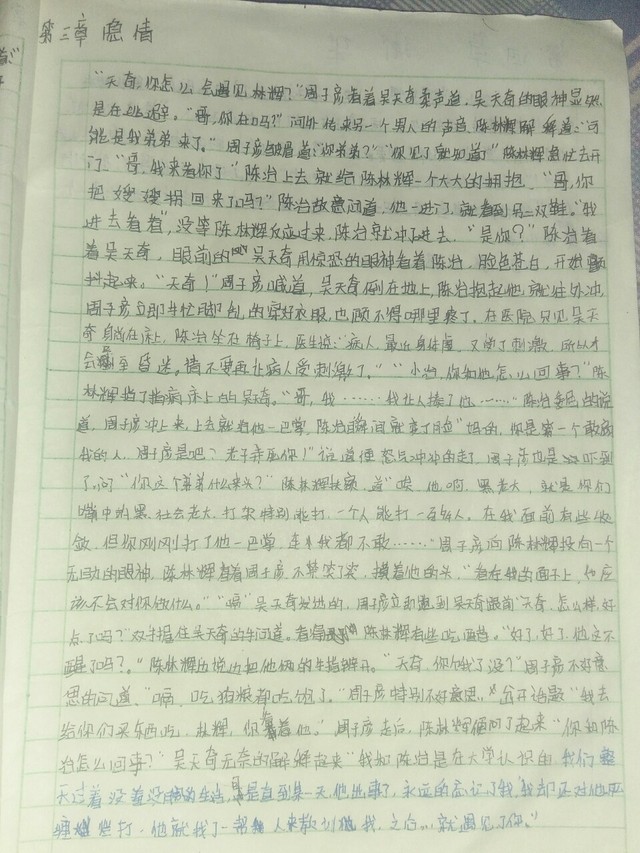 第三章 隐情
“天奇,你怎么会遇见林辉?”周子彦看着吴天奇柔声道,吴天奇的眼神显然
是在逃避。“哥,你在吗?”门外传来另一个男人的声音,陈林辉解释道:“可
能是我弟弟来了。”周子彦皱眉道:“你弟弟?”“你见了就知道了”陈林辉急忙去开
门,“哥,我来看你了”陈治上去就给陈林辉一个大大的拥抱。“哥,你
把嫂嫂拐回来了吗?”陈治故意问道,他一进门,就看到另一双鞋。“我
进去看看”,没等陈林辉反应过来,陈治就冲了进去,“是你?”陈治看
着吴天奇,眼前的吴天奇用惊恐的眼神看着陈治,脸色苍白,开始颤
抖起来。“天奇!”周子彦喊道,吴天奇倒在地上,陈治抱起他,就往外冲
周子彦立即手忙脚乱的穿好衣服,也顾不得哪里疼了。在医院只见吴天
奇躺在床上,陈治坐在椅子上,医生说:“病人最近身体虚,又受了刺激,所以才
会导至昏迷。请不要再让病人受刺激了。”“小治,你和他怎么回事?”陈
林辉指了指病床上的吴天奇。“哥,我……我让人揍了他……”陈治委屈的说
道,周子彦冲上来,上去就给他一巴掌,陈治瞬间就变了脸“妈的,你是第一个敢打
我的人,周子彦是吧?老子弄死你!”说道便怒气冲冲的走了,周子彦也是吓到
了。问“你这个弟弟什么来头?”陈林辉扶额,道“唉,他啊,黑老大,就是你们
嘴中的黑社会老大,打架特别能打,一个人能打一百多人。在我面前有些收
敛,但你刚刚打了他一巴掌,连我都不敢……”周子彦向陈林辉投向一个
无助的眼神,陈林辉看着周子彦不禁笑了笑,摸着他的头,“看在我的面子上,他应
该不会对你做什么。”“嗝”吴天奇发出的,周子彦立即跑到吴天奇跟前“天奇,怎么样,好
点了吗?”双手握住吴天奇的手问道。看得陈林辉有些吃醋。“好了,好了,他这不
醒了吗?。”陈林辉边说边把他俩的手指掰开。“天奇,你饿了没?”周子彦不好意
思的问道,“嗝,吃狗粮都吃饱了。”周子彦特别不好意思,岔开话题“我去
给你们买东西吃,林辉,你看着他。”周子彦走后,陈林辉便问了起来“你和陈
治怎么回事?”吴天奇无奈的解解起来“我和陈治是在大学认识的,我们整
天过着没羞没臊的生活,但是直到某一天他出事了,永远的忘记了我,我却还对他死
缠烂打,他就找了一帮人来教训我,之后…就遇见了你。”